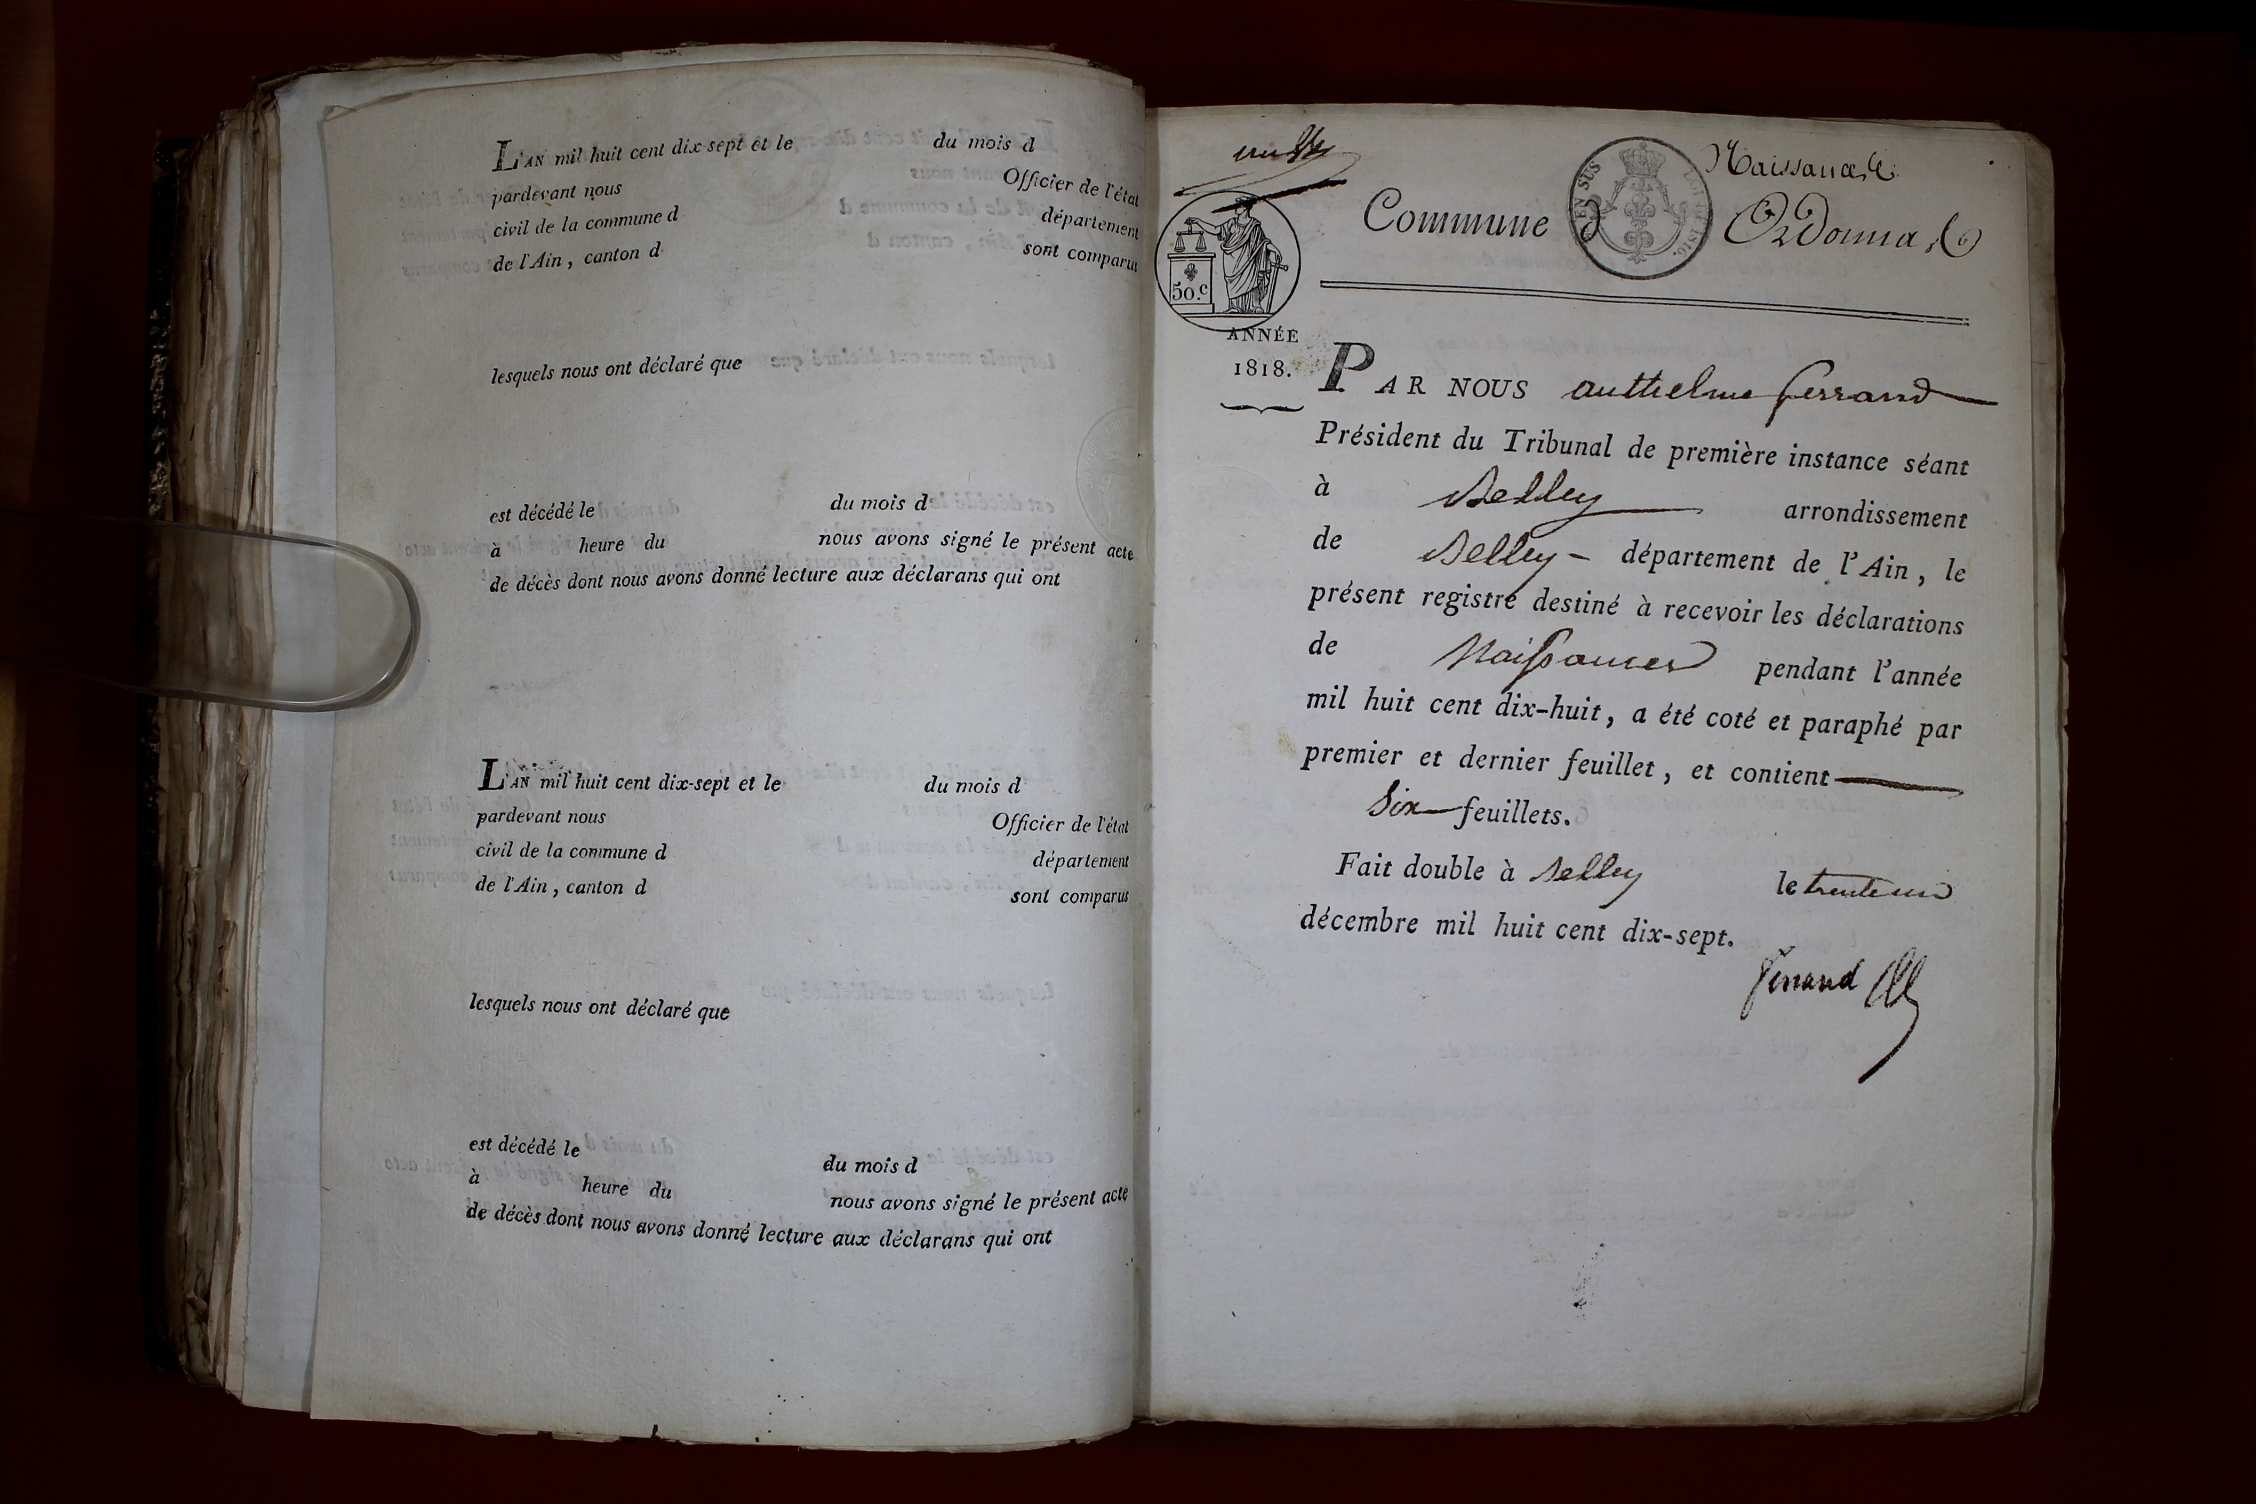 L'AN mil huit cent dix-sept et le du mois d
pardevant nous Officier de l'état
civil de la commune d département
de l'Ain, canton d sont comparus
lesquels nous ont déclaré que
est décédé le du mois d
à heure du nous avons signé le présent acte
de décès dont nous avons donné lecture aux déclarans qui ont
L'AN mil huit cent dix-sept et le du mois d
pardevant nous Officier de l'état
civil de la commune d département
de l'Ain, canton d sont comparus
lesquels nous ont déclaré que
est décédé le du mois d
à heure du nous avons signé le présent acte
de décès dont nous avons donné lecture aux déclarans qui ont
Naissances
EN SUS
LOI DE 1816.
Commune d Ordonnas
50.c
ANNÉE
1818.
PAR NOUS anthelme ferrand
Président du Tribunal de première instance séant
à Belley arrondissement
de Belley - département de l'Ain, le
présent registre destiné à recevoir les déclarations
de Naissances pendant l'année
mil huit cent dix-huit, a été coté et paraphé par
premier et dernier feuillet, et contient
Six feuillets.
Fait double à Belley le trente un
décembre mil huit cent dix-sept.
ferrand